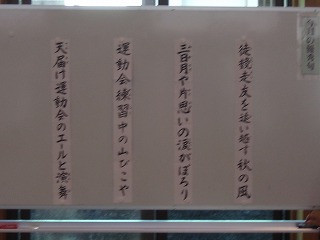 今月の優秀句
徒競走友を追い越す秋の風
三日月や片思いの涙がぽろり
運動会練習中の山びこや
天届け運動会のエールと演舞